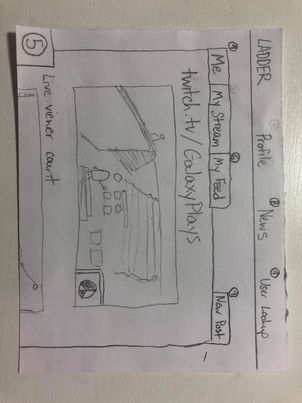 LADDER Profile News User Lookup
Me My Stream My Feed New Post
twitch.tv/GalaxyPlays
5 Live viewer court